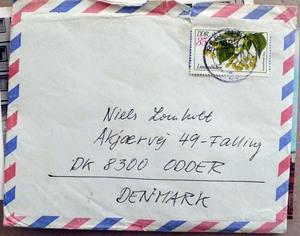 DDR 35
Niels Lomholt
Akjærvej 49-Falling
DK 8300 ODDER
DENMARK